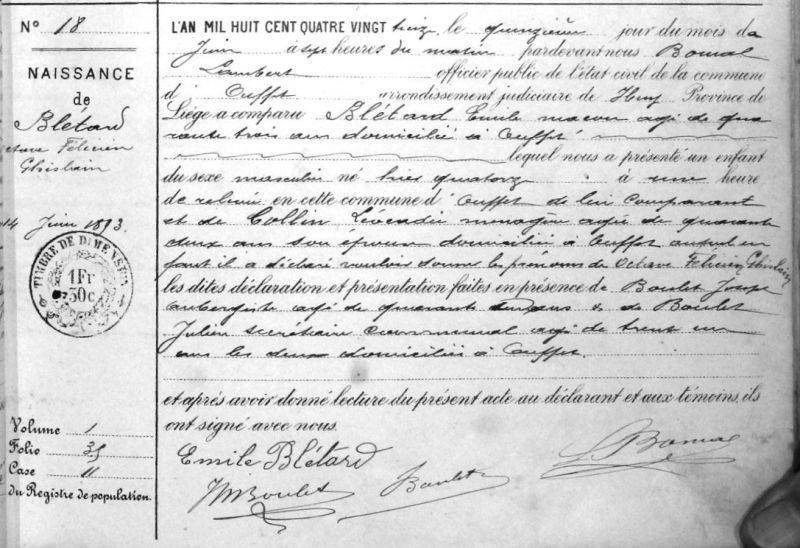 N° 18
NAISSANCE
de
Blétard
Octave Félicien
Ghislain
14 Juin 1893.
TIMBRE DE DIMENSION
1 Fr
30 c
Volume 1
Folio 35
Case 11
du Registre de population.
L'AN MIL HUIT CENT QUATRE VINGT treize le quinzième jour du mois de
Juin à sept heures du matin pardevant nous Bomal
Lambert officier public de l'état civil de la commune
d' Ouffet arrondissement judiciaire de Huy Province de
Liége a comparu Blétard Emile maçon agé de qua
rante trois ans domicilié à Ouffet
lequel nous a présenté un enfant
du sexe masculin né hier quatorze à une heure
de relevée en cette commune d' Ouffet de lui Comparant
et de Collin Léocadie ménagère agée de quarante
deux ans son épouse domiciliée à Ouffet auquel en
fant il a déclaré vouloir donner les prénoms de Octave Félicien Ghislain
les dites déclaration et présentation faites en présence de Boulet Joseph
aubergiste agé de quarante ans & de Boulet
Julien secrétaire communal agé de trente un
ans les deux domiciliés à Ouffet.
et aprés avoir donné lecture du présent acte au déclarant et aux témoins, ils
ont signé avec nous.
Emile Blétard
L. Bomal
Boulet
Boulet